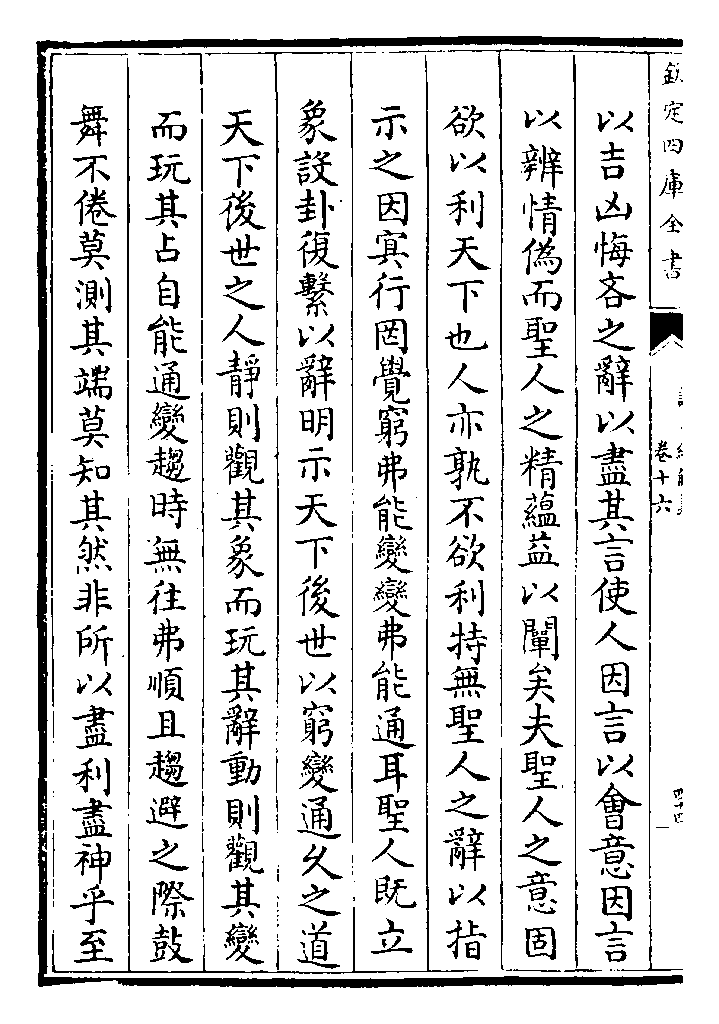 欽定四庫全書
卷十六
四十四
以吉凶悔吝之辭以盡其言使人因言以會意因言
以辨情偽而聖人之精蘊益以闡矣夫聖人之意固
欲以利天下也人亦孰不欲利特無聖人之辭以指
示之因冥行罔覺窮弗能變變弗能通耳聖人既立
象設卦復繫以辭明示天下後世以窮變通久之道
天下後世之人靜則觀其象而玩其辭動則觀其變
而玩其占自能通變趨時無往弗順且趨避之際鼓
舞不倦莫測其端莫知其然非所以盡利盡神乎至